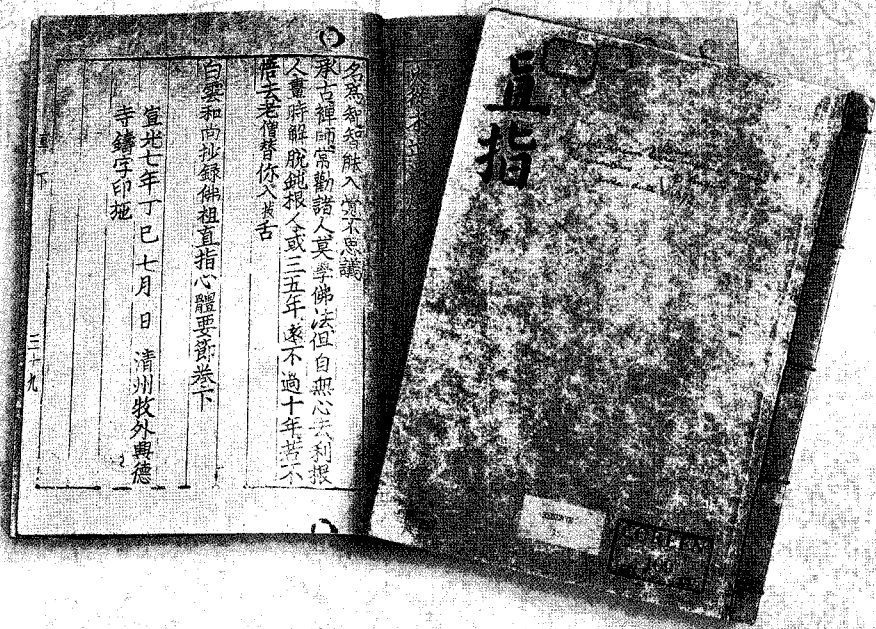 名爲智入不思議
承古禪師常勸諸人莫學佛法但自無心去利根
人畫時解脫鈍根人或三五年遂不過十年若不
悟去老僧替你入拔舌
白雲和尚抄録佛祖直指心體要節卷下
宣光七年丁巳七月 日 清州牧外興德
寺鑄字印施
下
三十九
直指
COREEN
109